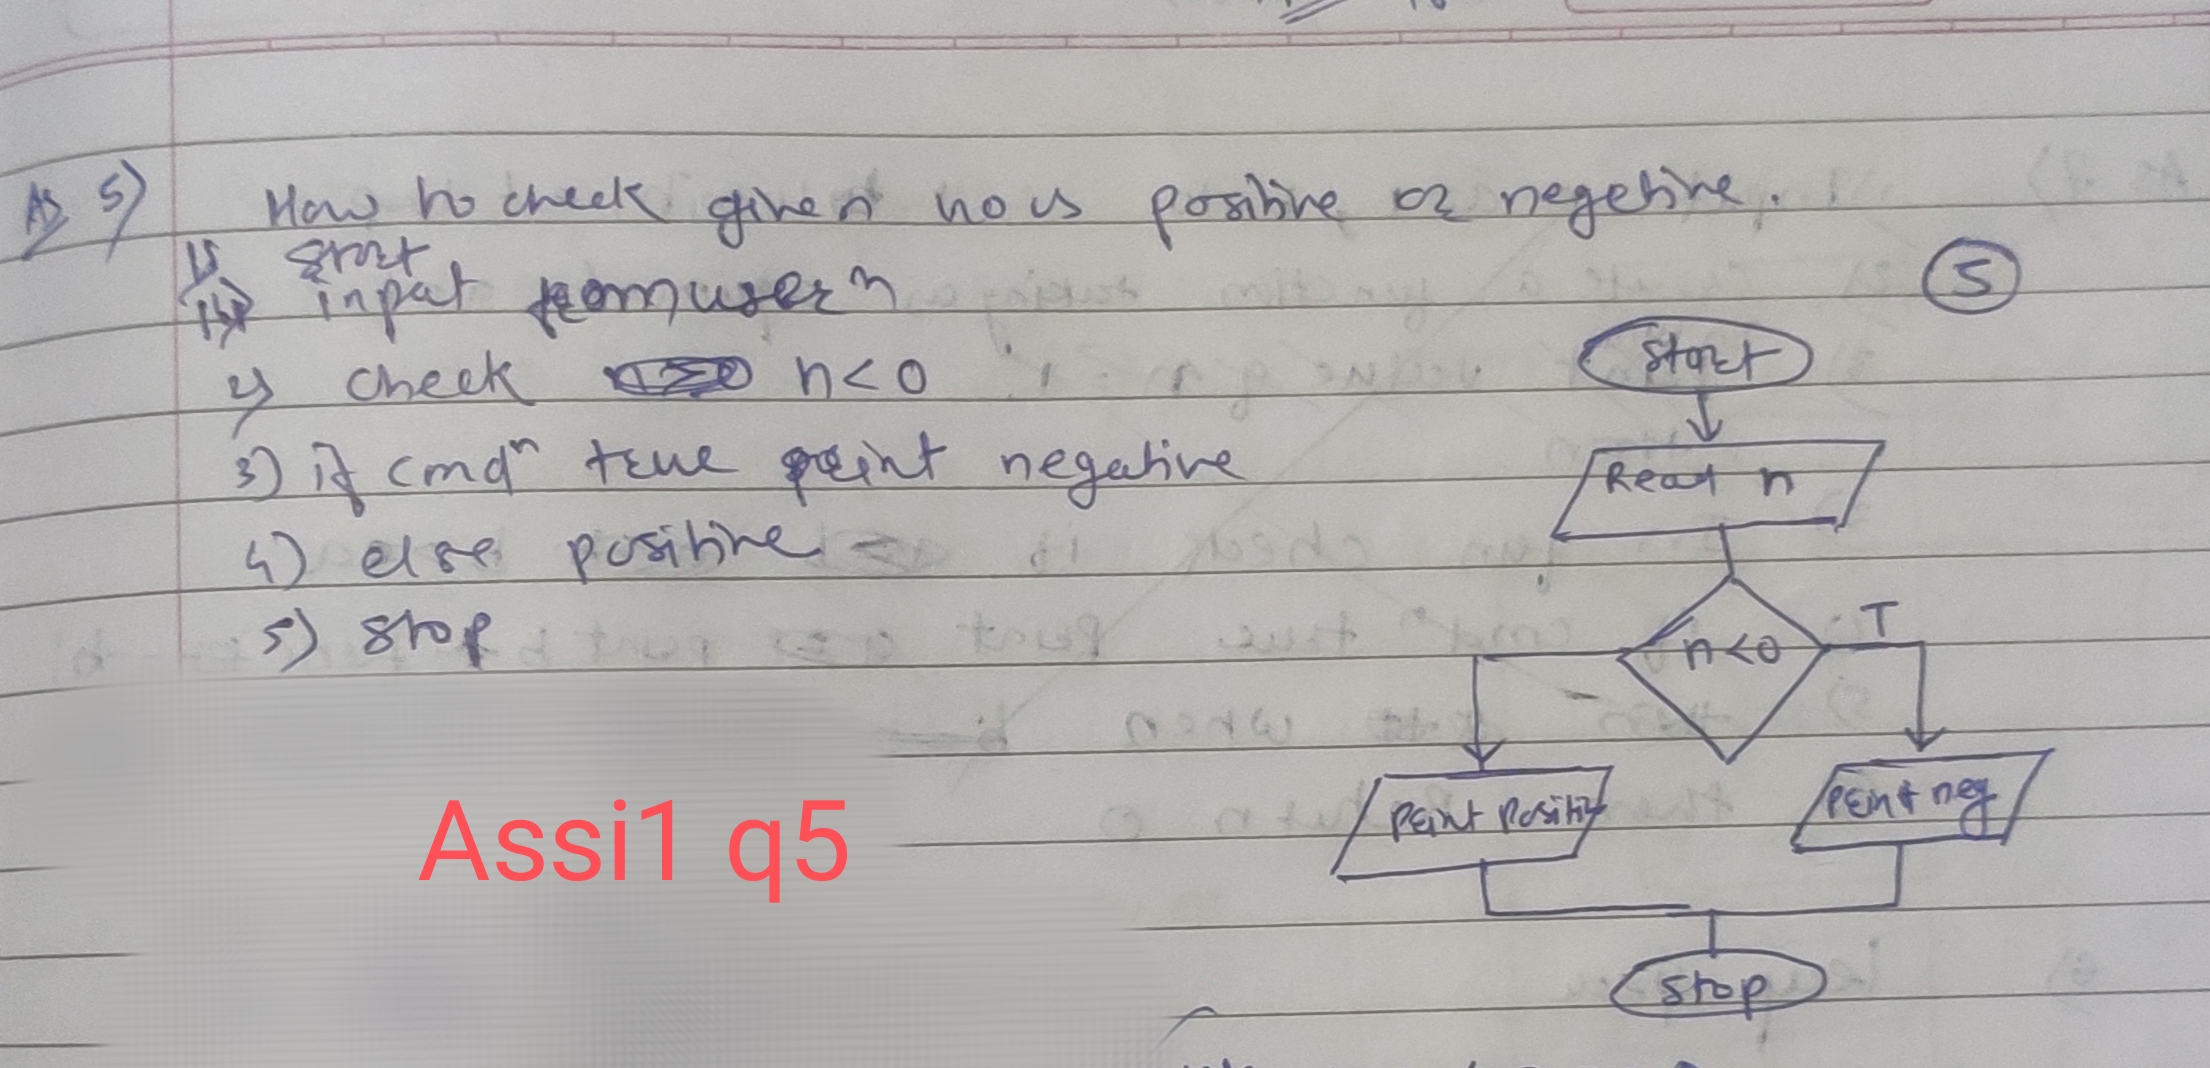 As 5) How to check given no is positive or negetive.
1) Start
input from user n
2) check n<0
3) if cmdⁿ true print negative
4) else positive
5) stop
5
Start
Read n
n<0
T
Print Positiv
Print neg
Stop
Assi1 q5